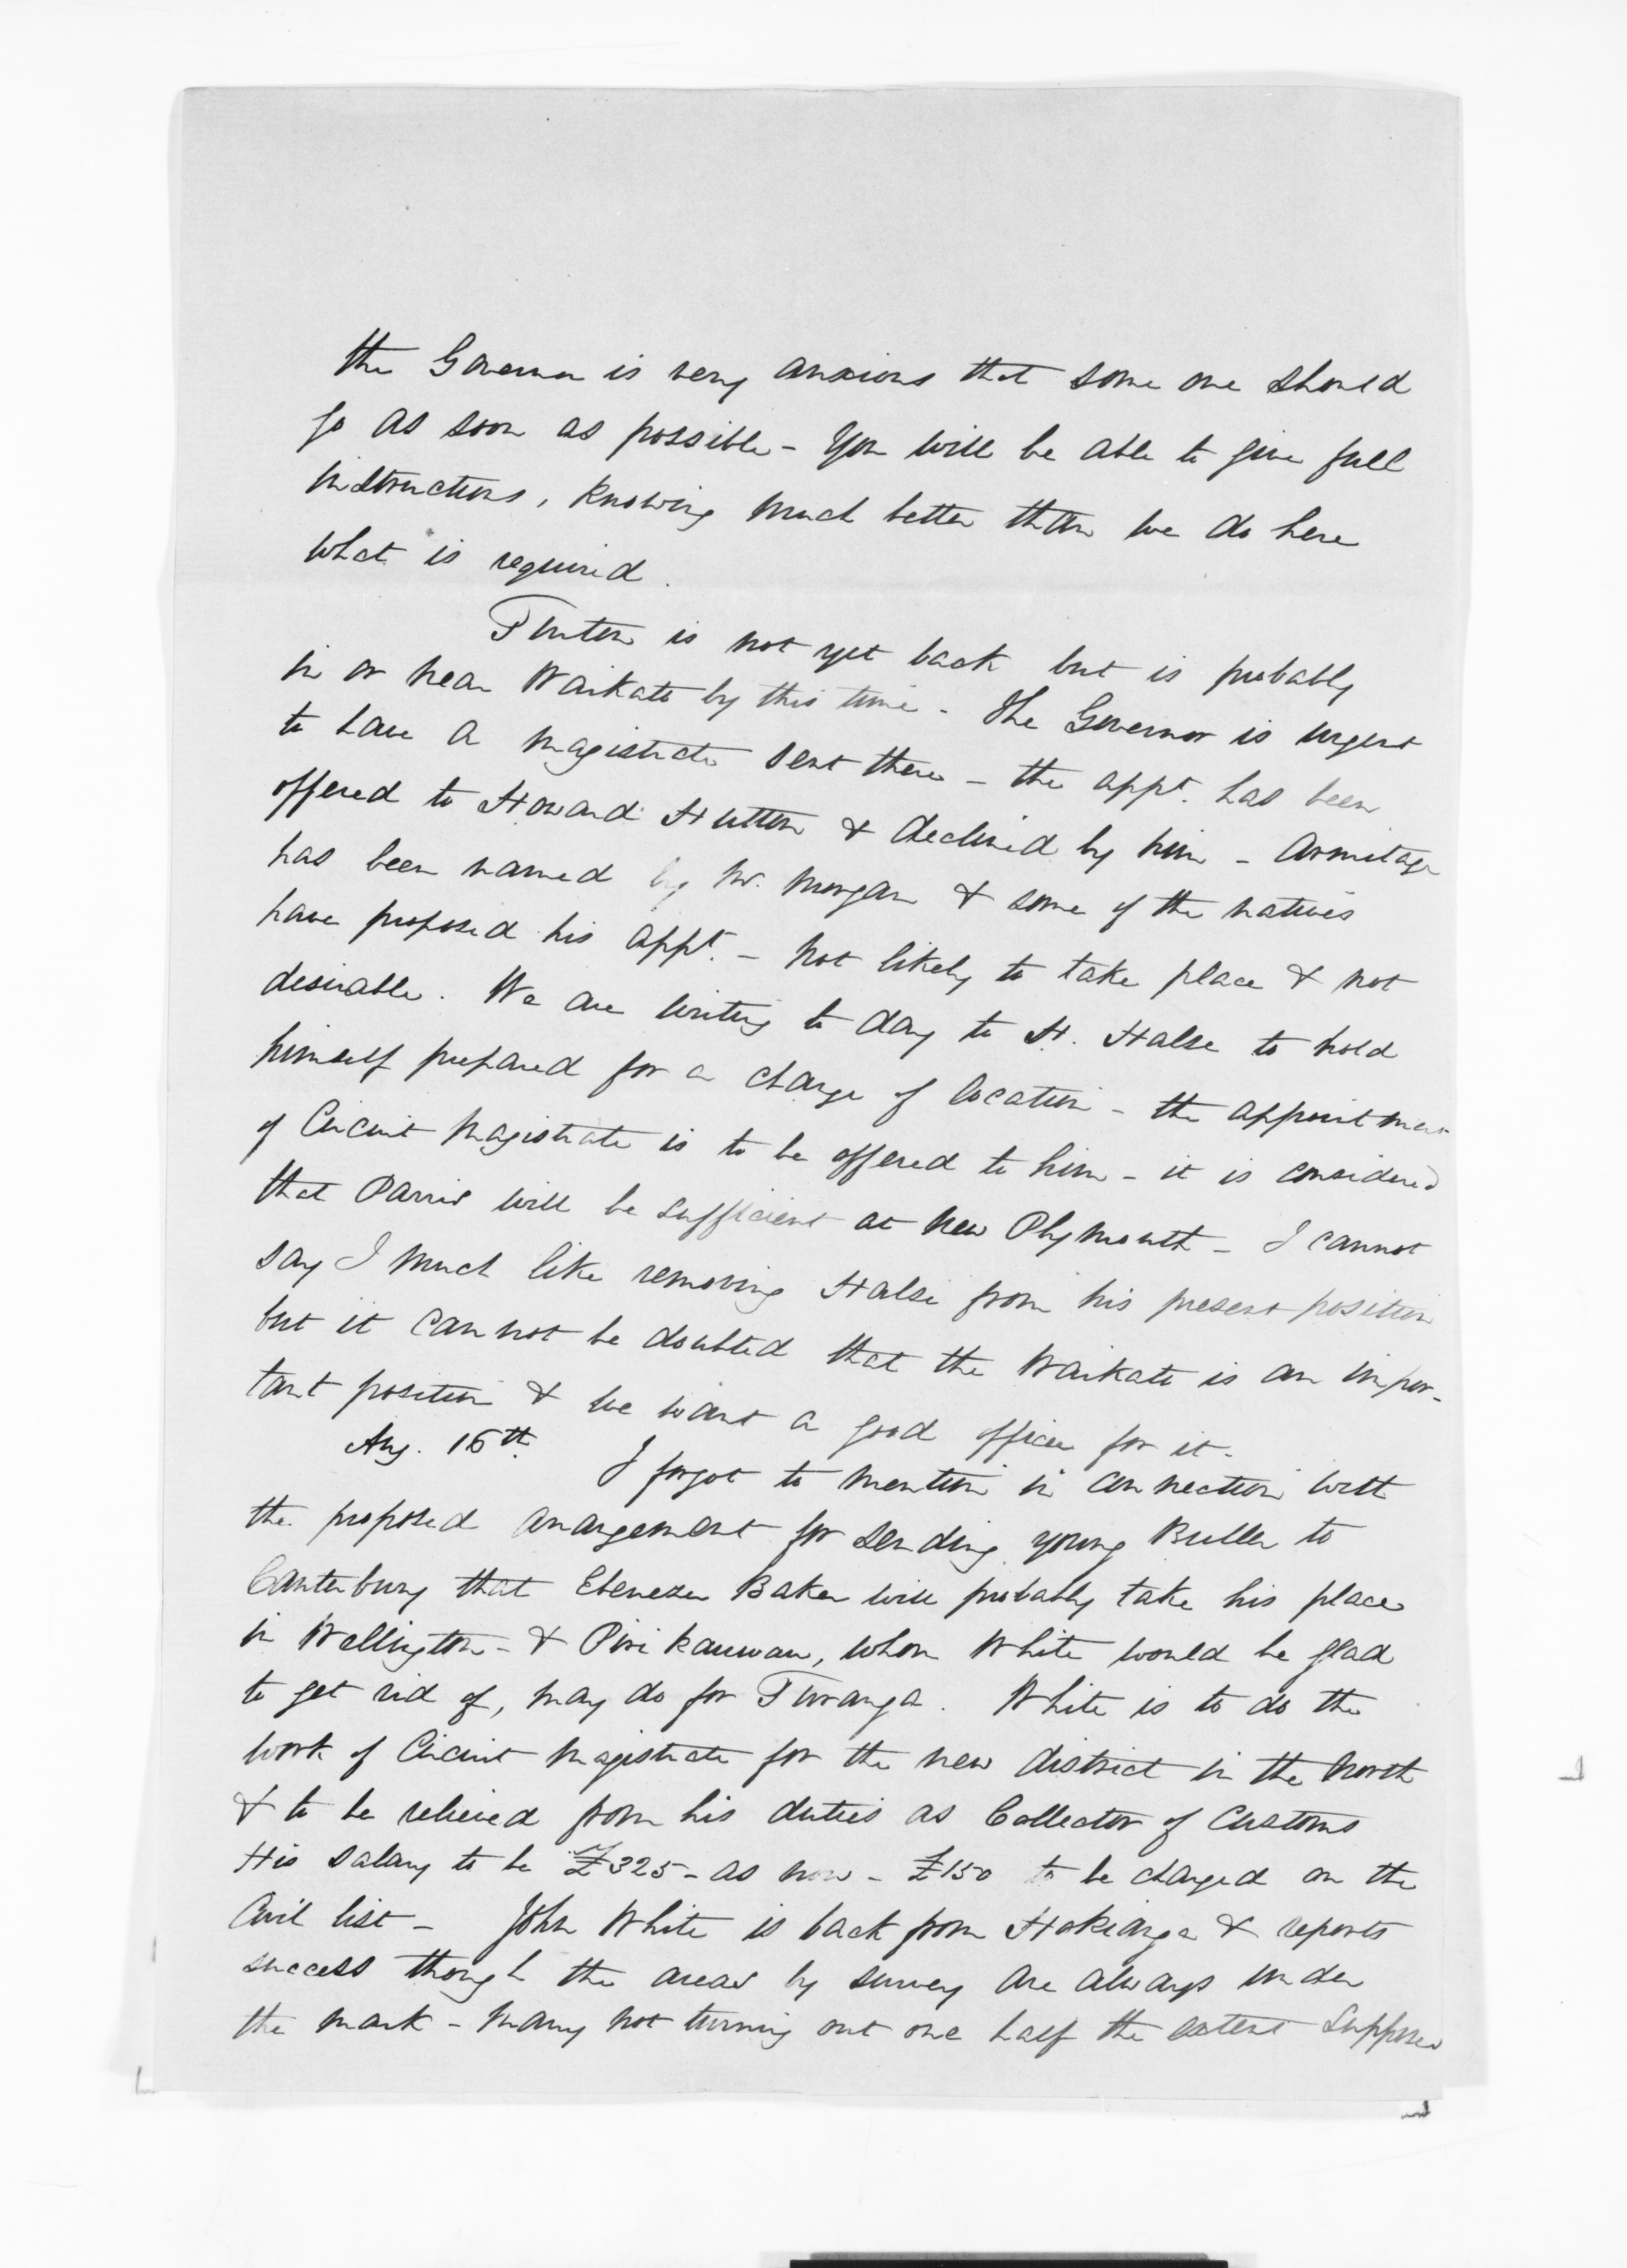 the Governor is very anxious that some one should
go as soon as possible - You will be able to give full
instructions, knowing much better than we do here
what is required.
Turton is not yet back but is probably
in or near Waikato by this time - The Governor is urgent
to have a magistrate sent there - the appt. has been
offered to Howard Hutton & declined by him - Armitage
has been named by Mr. Morgan & some of the natives
have proposed his appt. - not likely to take place & not
desirable. We are writing to day to H. Halse to hold
himself prepared for a change of location - the appointment
of Circuit Magistrate is to be offered to him - it is considered
that Parris will be sufficient at New Plymouth - I cannot
say I much like removing Halse from his present position
but it cannot be doubted that the Waikato is an impor-
tant position & we want a good officer for it -
Aug. 16th. I forgot to mention in connection with
the proposed arrangement for sending young Buller to
Canterbury that Ebenezer Baker will probably take his place
in Wellington - & Piri Kauwau, whom White would be glad
to get rid of, may do for Turanga. White is to do the
work of Circuit Magistrate for the new district in the North
& to be relieved from his duties as Collector of Customs
His salary to be £325 - as now - £150 to be charged on the
Civil list - John White is back from Hokianga & reports
success though the areas by survey are always under
the mark - many not turning out one half the extent supposed